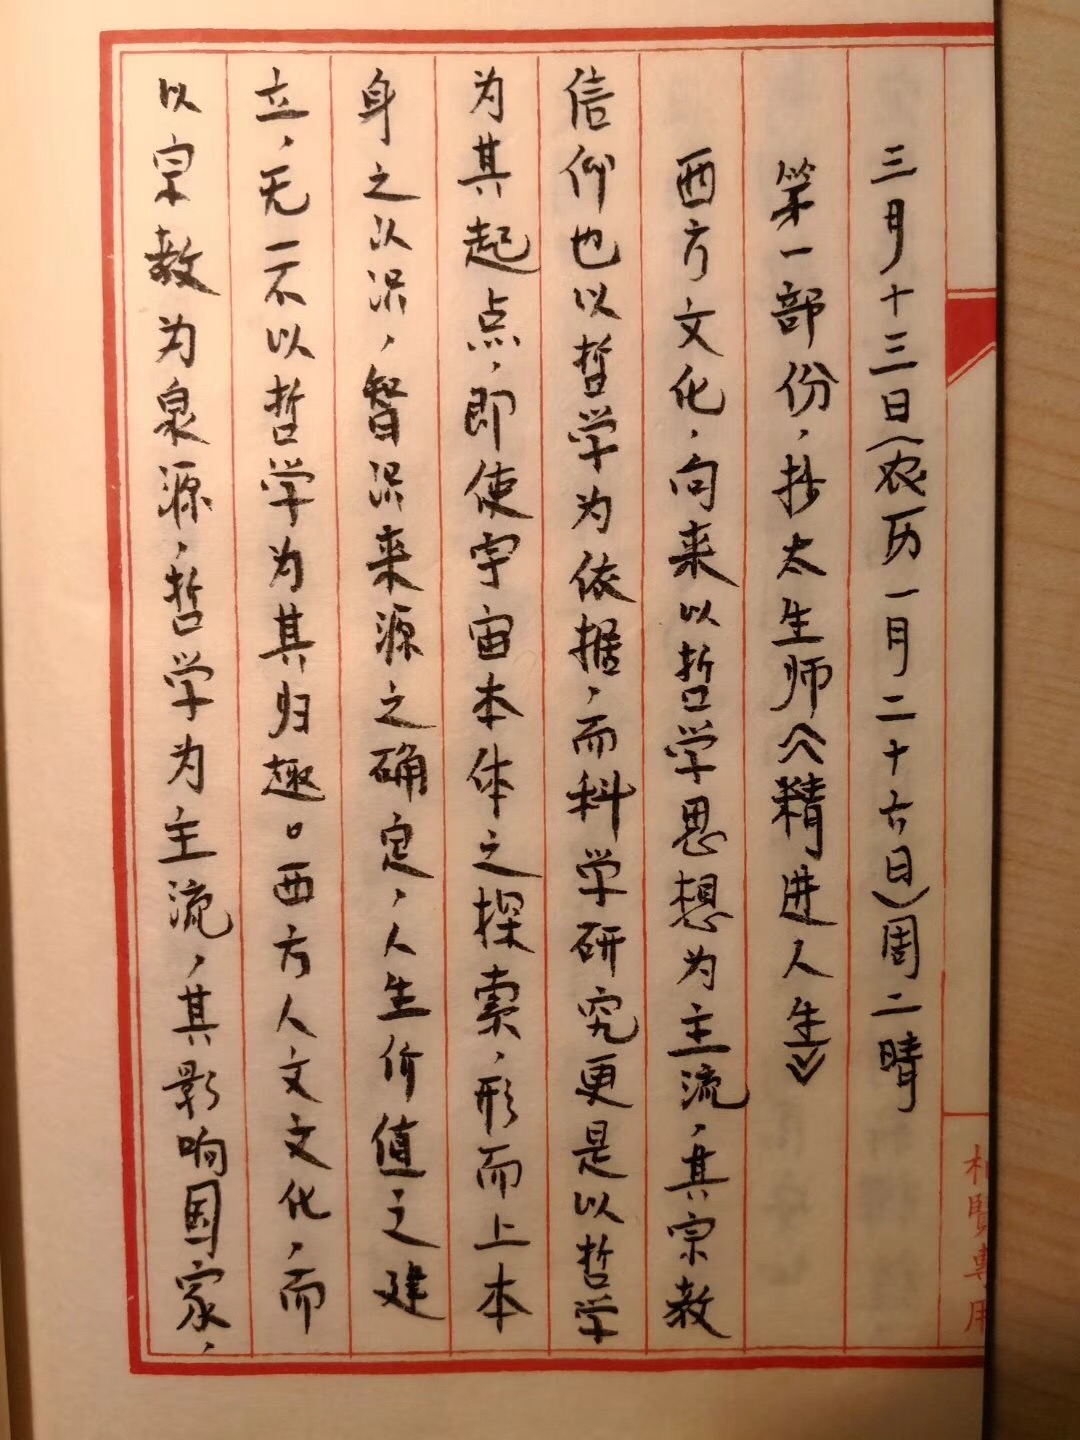 三月十三日(农历一月二十六日)周二晴
第一部份，抄太生师《精进人生》
西方文化，向来以哲学思想为主流，其宗教
信仰也以哲学为依据，而科学研究更是以哲学
为其起点，即使宇宙本体之探索，形而上本
身之认识，智识来源之确定，人生价值之建
立，无一不以哲学为其归趣。西方人文文化，而
以宗教为泉源，哲学为主流，其影响国家，